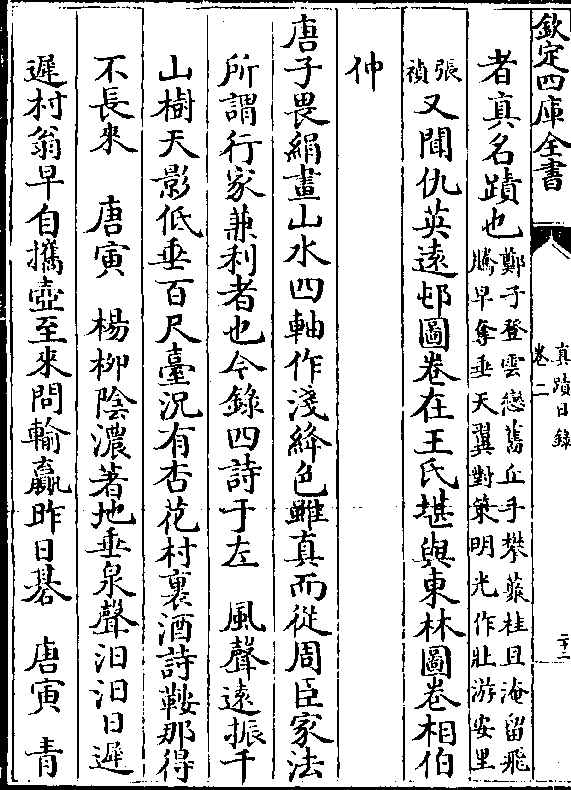 欽定四庫全書
真蹟日錄
卷二
二十二
者真名蹟也
鄭子登雲戀舊丘手攀藂桂且淹留飛
騰早奪垂天翼對策明光作壯游安里
張禎
又聞仇英遠邨圖卷在王氏堪與東林圖卷相伯
仲
唐子畏絹畫山水四軸作淺絳色雖真而從周臣家法
所謂行家兼利者也今錄四詩于左　風聲遠振千
山樹天影低垂百尺臺況有杏花村裏酒詩鞍那得
不長來　唐寅　楊柳陰濃著地垂泉聲汨汨日遲
遲村翁早自攜壺至來問輸贏昨日碁　唐寅　青